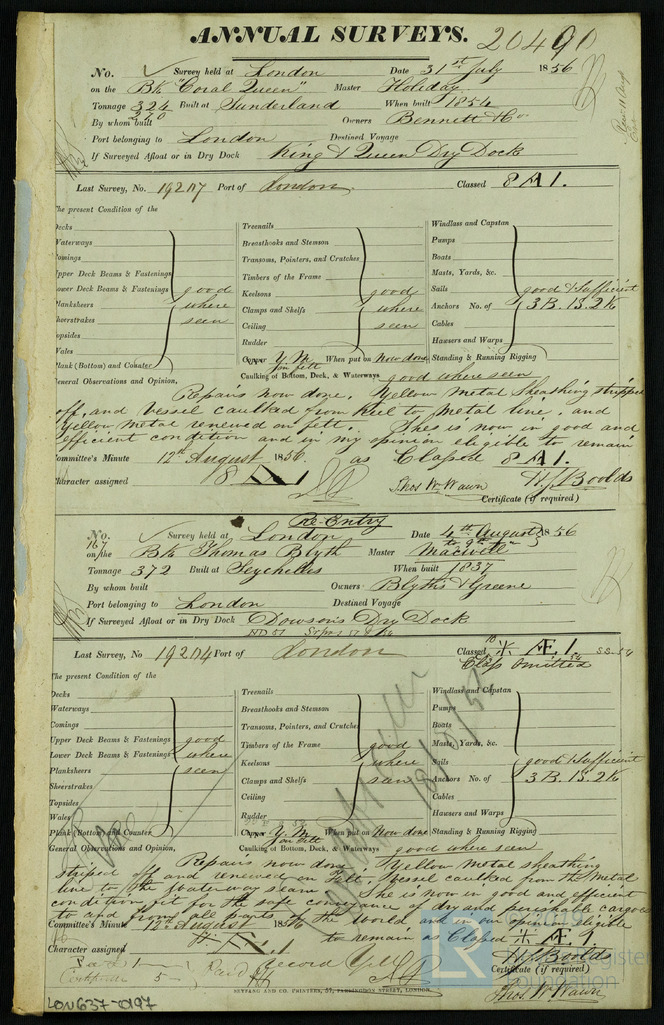 ANNUAL SURVEYS. 20490
No. Survey held at London Date 31st July 1856
on the Bk "Coral Queen" Master Holiday
Tonnage 324 Built at Sunderland When built 1854
By whom built Owners Bennett & Co.
Port belonging to London Destined Voyage
If Surveyed Afloat or in Dry Dock King & Queen Dry Dock
Last Survey, No. 19207 Port of London Classed 8 A 1.
The present Condition of the
Decks Treenails Windlass and Capstan
Waterways Breasthooks and Stemson Pumps
Comings Transoms, Pointers, and Crutches Boats
Upper Deck Beams & Fastenings Timbers of the Frame Masts, Yards, &c.
Lower Deck Beams & Fastenings good Keelsons good Sails good & Sufficient
Planksheers where Clamps and Shelfs where Anchors No. of 3 B. 1 S. 2 K
Sheerstrakes seen Ceiling seen Cables
Topsides Rudder Hawsers and Warps
Wales Copper Y.M. When put on now done Standing & Running Rigging
on felt
Plank (Bottom) and Counter Caulking of Bottom, Deck, & Waterways good where seen
General Observations and Opinion,
Repairs now done. Yellow Metal Sheathing stripped
off, and vessel caulked from keel to metal line, and
yellow metal renewed on felt. She is now in good and
efficient condition and in my opinion eligible to remain
Committee's Minute 12th August 1856. as Classed 8 A 1.
Character assigned 8 A 1 Thos W. Wawn H. J. Boolds
Certificate (if required)
Re-Entry
No. 167 Survey held at London Date 4th August 1856
on the Bk Thomas Blyth Master
Tonnage 372 Built at Seychelles When built 1837
By whom built Owners Blyths & Greene
Port belonging to London Destined Voyage
If Surveyed Afloat or in Dry Dock Dowson's Dry Dock
Last Survey, No 19204 Port of London Classed Æ 1. SS. 54
Class omitted
The present Condition of the
Decks Treenails Windlass and Capstan
Waterways Breasthooks and Stemson Pumps
Comings Transoms, Pointers, and Crutches Boats
Upper Deck Beams & Fastenings good Timbers of the Frame good Masts, Yards, &c.
Lower Deck Beams & Fastenings where Keelsons where Sails good & Sufficient
Planksheers seen Clamps and Shelfs seen Anchors No. of 3 B. 1 S. 2 K
Sheerstrakes Ceiling Cables
Topsides Rudder Hawsers and Warps
Wales Copper Y.M. When put on Now done Standing & Running Rigging
on felt
Plank (Bottom) and Counter Caulking of Bottom, Deck, & Waterways good where seen
General Observations and Opinion,
Repairs now done. Yellow Metal sheathing
striped off and renewed on Felt. Vessel caulked from the Metal
line to the Waterway seam. She is now in good and efficient
condition fit for the safe conveyance of dry and perishable cargoes
to and from all parts of the World and in our opinion eligible
Committee's Minute 12th August 1856 to remain as Classed Æ 1.
Character assigned Æ 1 H. J. Boolds
Certificate 5 Paid Record Certificate (if required)
Thos. W. Wawn
METFANG AND CO. PRINTERS, 57, FARRINGDON STREET, LONDON.
LON637-0197